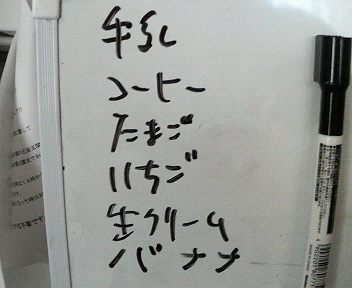 牛乳
コーヒー
たまご
いちご
生クリーム
バナナ